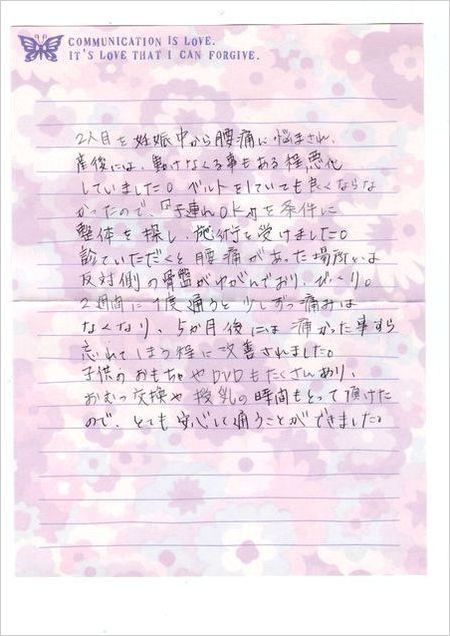 COMMUNICATION IS LOVE.
IT'S LOVE THAT I CAN FORGIVE.
2人目を妊娠中から腰痛に悩まされ、
産後には、動けなくなる事もある程、悪化
していました。ベルトをしていても良くならな
かったので、「子連れOK」を条件に
整体を探し、施術を受けました。
診ていただくと腰痛があった場所とは
反対側の骨盤がゆがんでおり、びっくり。
2週間に1度通うと少しずつ痛みは
なくなり、5か月後には痛かった事すら
忘れてしまう程に改善されました。
子供のおもちゃやDVDもたくさんあり、
おむつ交換や授乳の時間もとって頂けた
ので、とても安心して通うことができました。